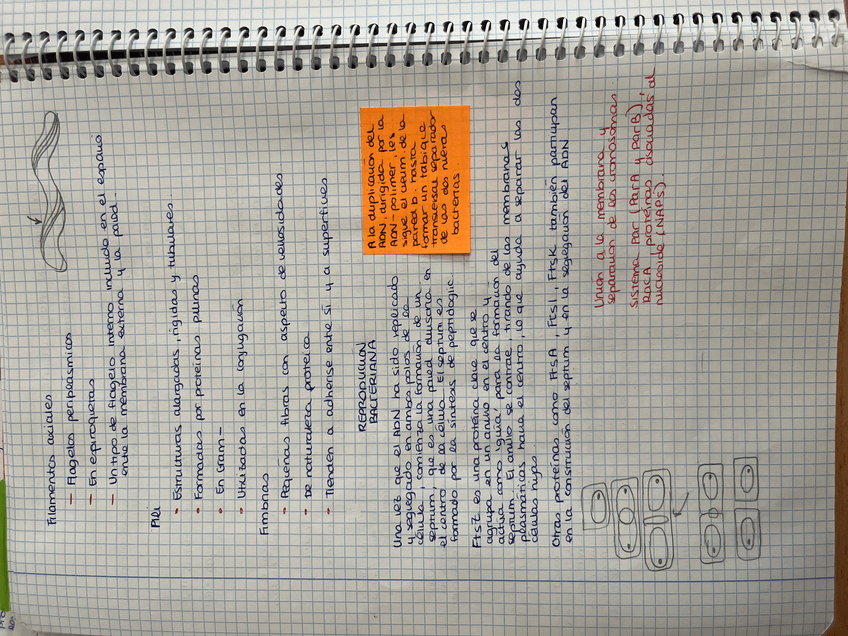 Filamentos axiales
- Flagelos periplasmicos
- En espiroquetas
- Un tipo de flagelo interno incluido en el espacio
entre la membrana externa y la pared.
Pili
- Estructuras alargadas, rígidas y tubulares
- Formadas por proteínas pilinas
- En Gram -
- Utilizadas en la conjugación
Fimbrias
- Pequeñas fibras con aspecto de vellosidades
- De naturaleza proteica
- Tienden a adherirse entre sí y a superficies
REPRODUCCION
BACTERIANA
Una vez que el ADN ha sido replicado
y segregado en ambos polos de la
célula, comienza la formación de un
septum, que es una pared divisoria en
el centro de la célula. El septum es
formado por la síntesis de peptidoglic
A la duplicación del
ADN, dirigida por la
ADN-polimer, les
sigue el
pared b. hasta
formar un tabique
transversal separador
de las dos nuevas
bacterias.
FtsZ es una proteína clave que se
agrupa en un anillo en el centro y
actúa como 'guía' para la formación del
septum. El anillo se contrae, tirando de las membranas
plasmáticas hacia el centro, lo que ayuda a separar las dos
células hijas
Otras proteínas como FtsA, FtsI, FtsK también participan
en la construcción del septum y en la segregación del ADN
Unión a la membrana y
separación de los cromosomas.
Sistema Par (ParA y ParB),
RacA, proteínas asociadas al
nucleoide (NAPs).